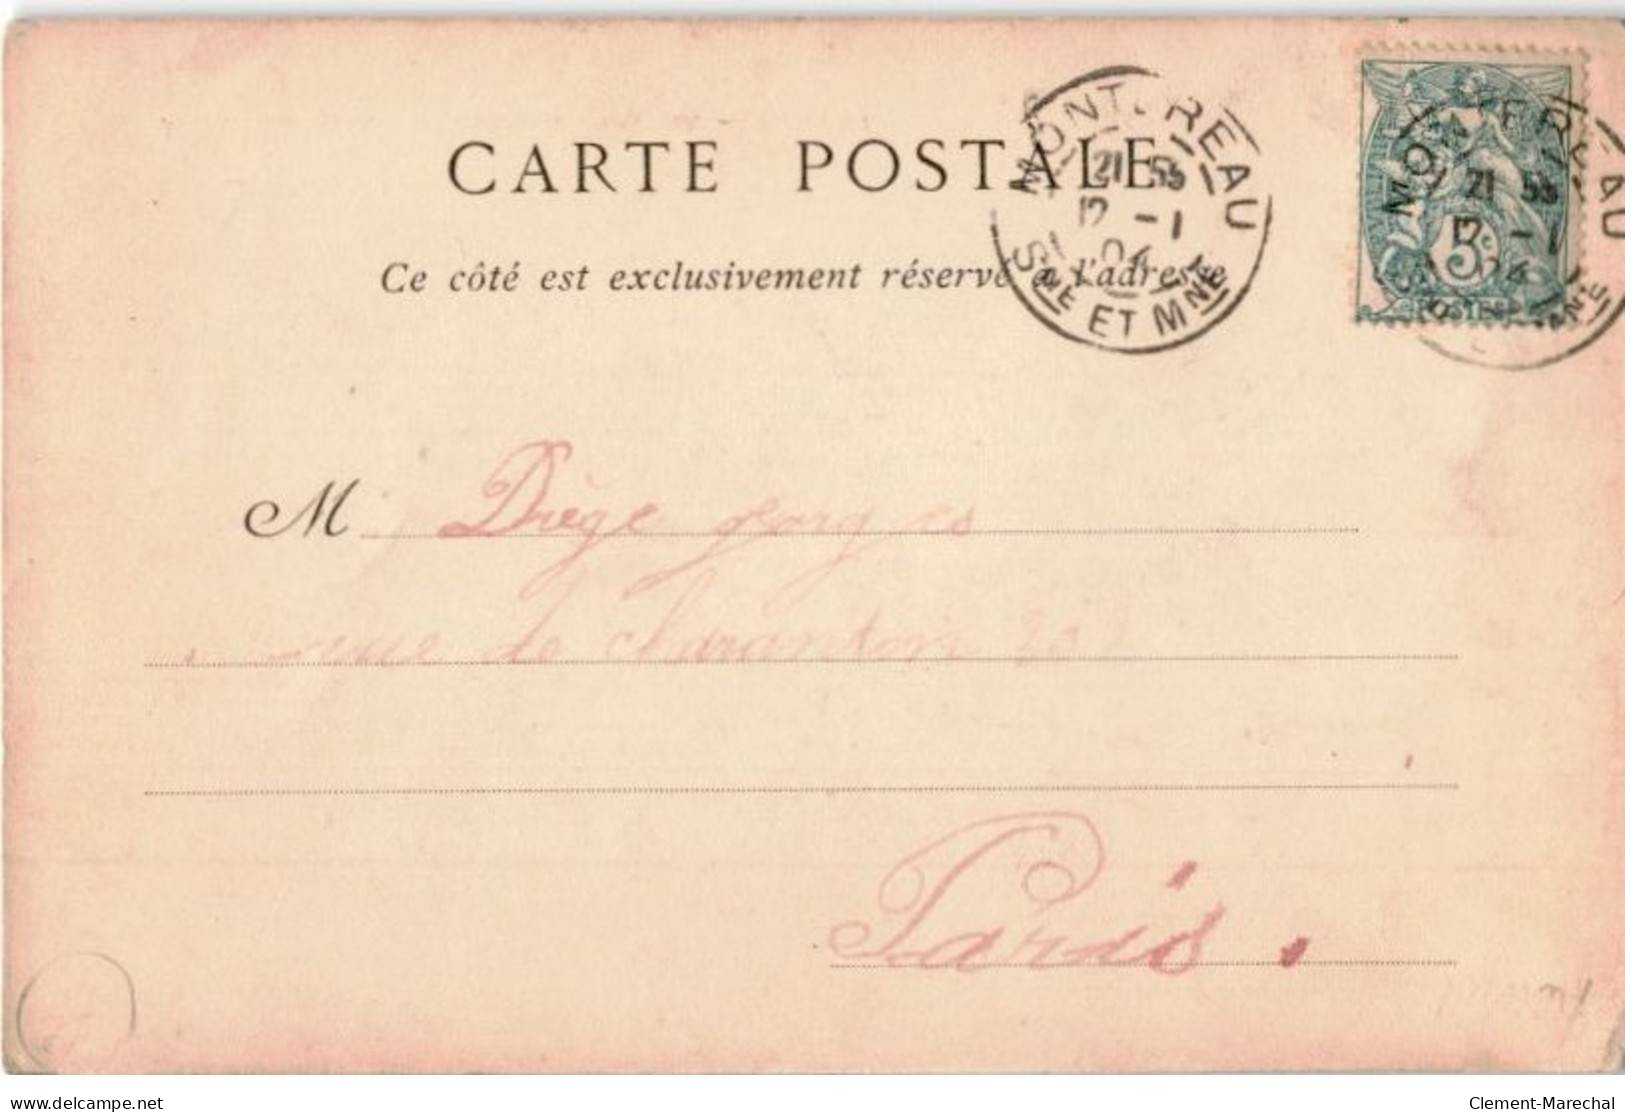 CARTE POSTALE
Ce côté est exclusivement réservé à l'adresse
MONTEREAU
21 55
12 -1
04
SNE ET MNE
MONTEREAU
21 55
12 -1
04
5c
POSTES
M Diège georges
rue de charanton 202
Paris.
delcampe.net
Clement-Marechal